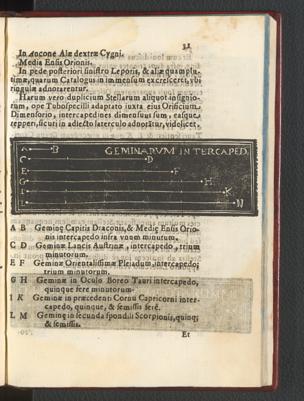 31
In Ancone Alæ dextræ Cygni.
Media Ensis Orionis.
In pede posteriori sinistro Leporis, & aliæ quamplu-
rimæ, quarum Catalogus in immensum excresceret, ubi
singulæ adnotarentur.
Harum vero duplicium Stellarum aliquot insignio-
rum, ope Tubospecilli adaptato iuxta eius Orificium
Dimensorio, intercapedines dimensus sum, easque,
repperi, sicuti in adiecto laterculo adnotatur, videlicet.
GEMINARVM INTERCAPED.
A B
C D
E F
G H
I K
L N
A B Geminę Capitis Draconis, & Medię Ensis Orio-
nis intercapedo infra vnum minutum.
C D Geminæ Lancis Austrinæ, intercapedo, trium
minutorum.
E F Geminæ Orientalissimæ Pleiadum, intercapedo;
trium minutorum.
G H Geminæ in Oculo Boreo Tauri intercapedo,
quinque fere minutorum.
I K Geminæ in præcedenti Cornu Capricorni inter-
capedo, quinque, & semissis ferè.
L M Geminę in secunda spondili Scorpionis, quinq;
& semissis.
Et